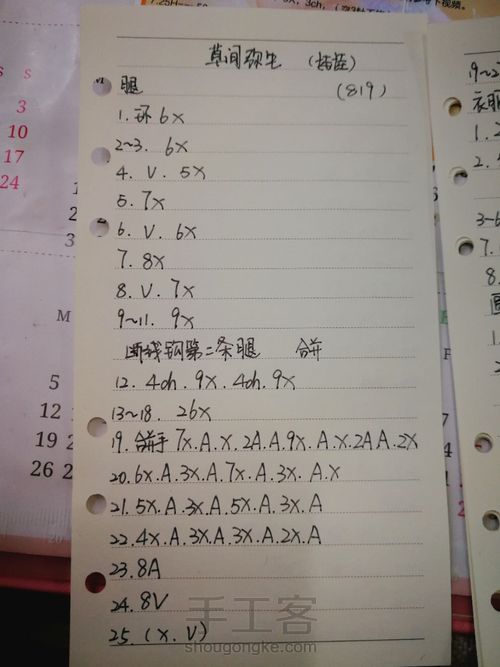 7.25H
3ch,
视频.
S S
3
10
17
24
M
5
12
19
26
20
草间弥生 (娃娃)
(819)
腿
1. 环 6x
2~3. 6x
4. V. 5x
5. 7x
6. V. 6x
7. 8x
8. V. 7x
9~11. 9x
断线钩第二条腿 合并
12. 4ch. 9x. 4ch. 9x
13~18. 26x
19. 合并手 7x.A.x.2A.A.9x.A.x.2A A.2x
20. 6x.A.3x.A.7x.A.3x.A.x
21. 5x.A.3x.A.5x.A.3x.A
22. 4x.A.3x.A.3x.A.2x.A
23. 8A
24. 8V
25. (x.V)
手工客
shougongke.com
19~2
衣服
1. 2
2.
3~6
7.
8.